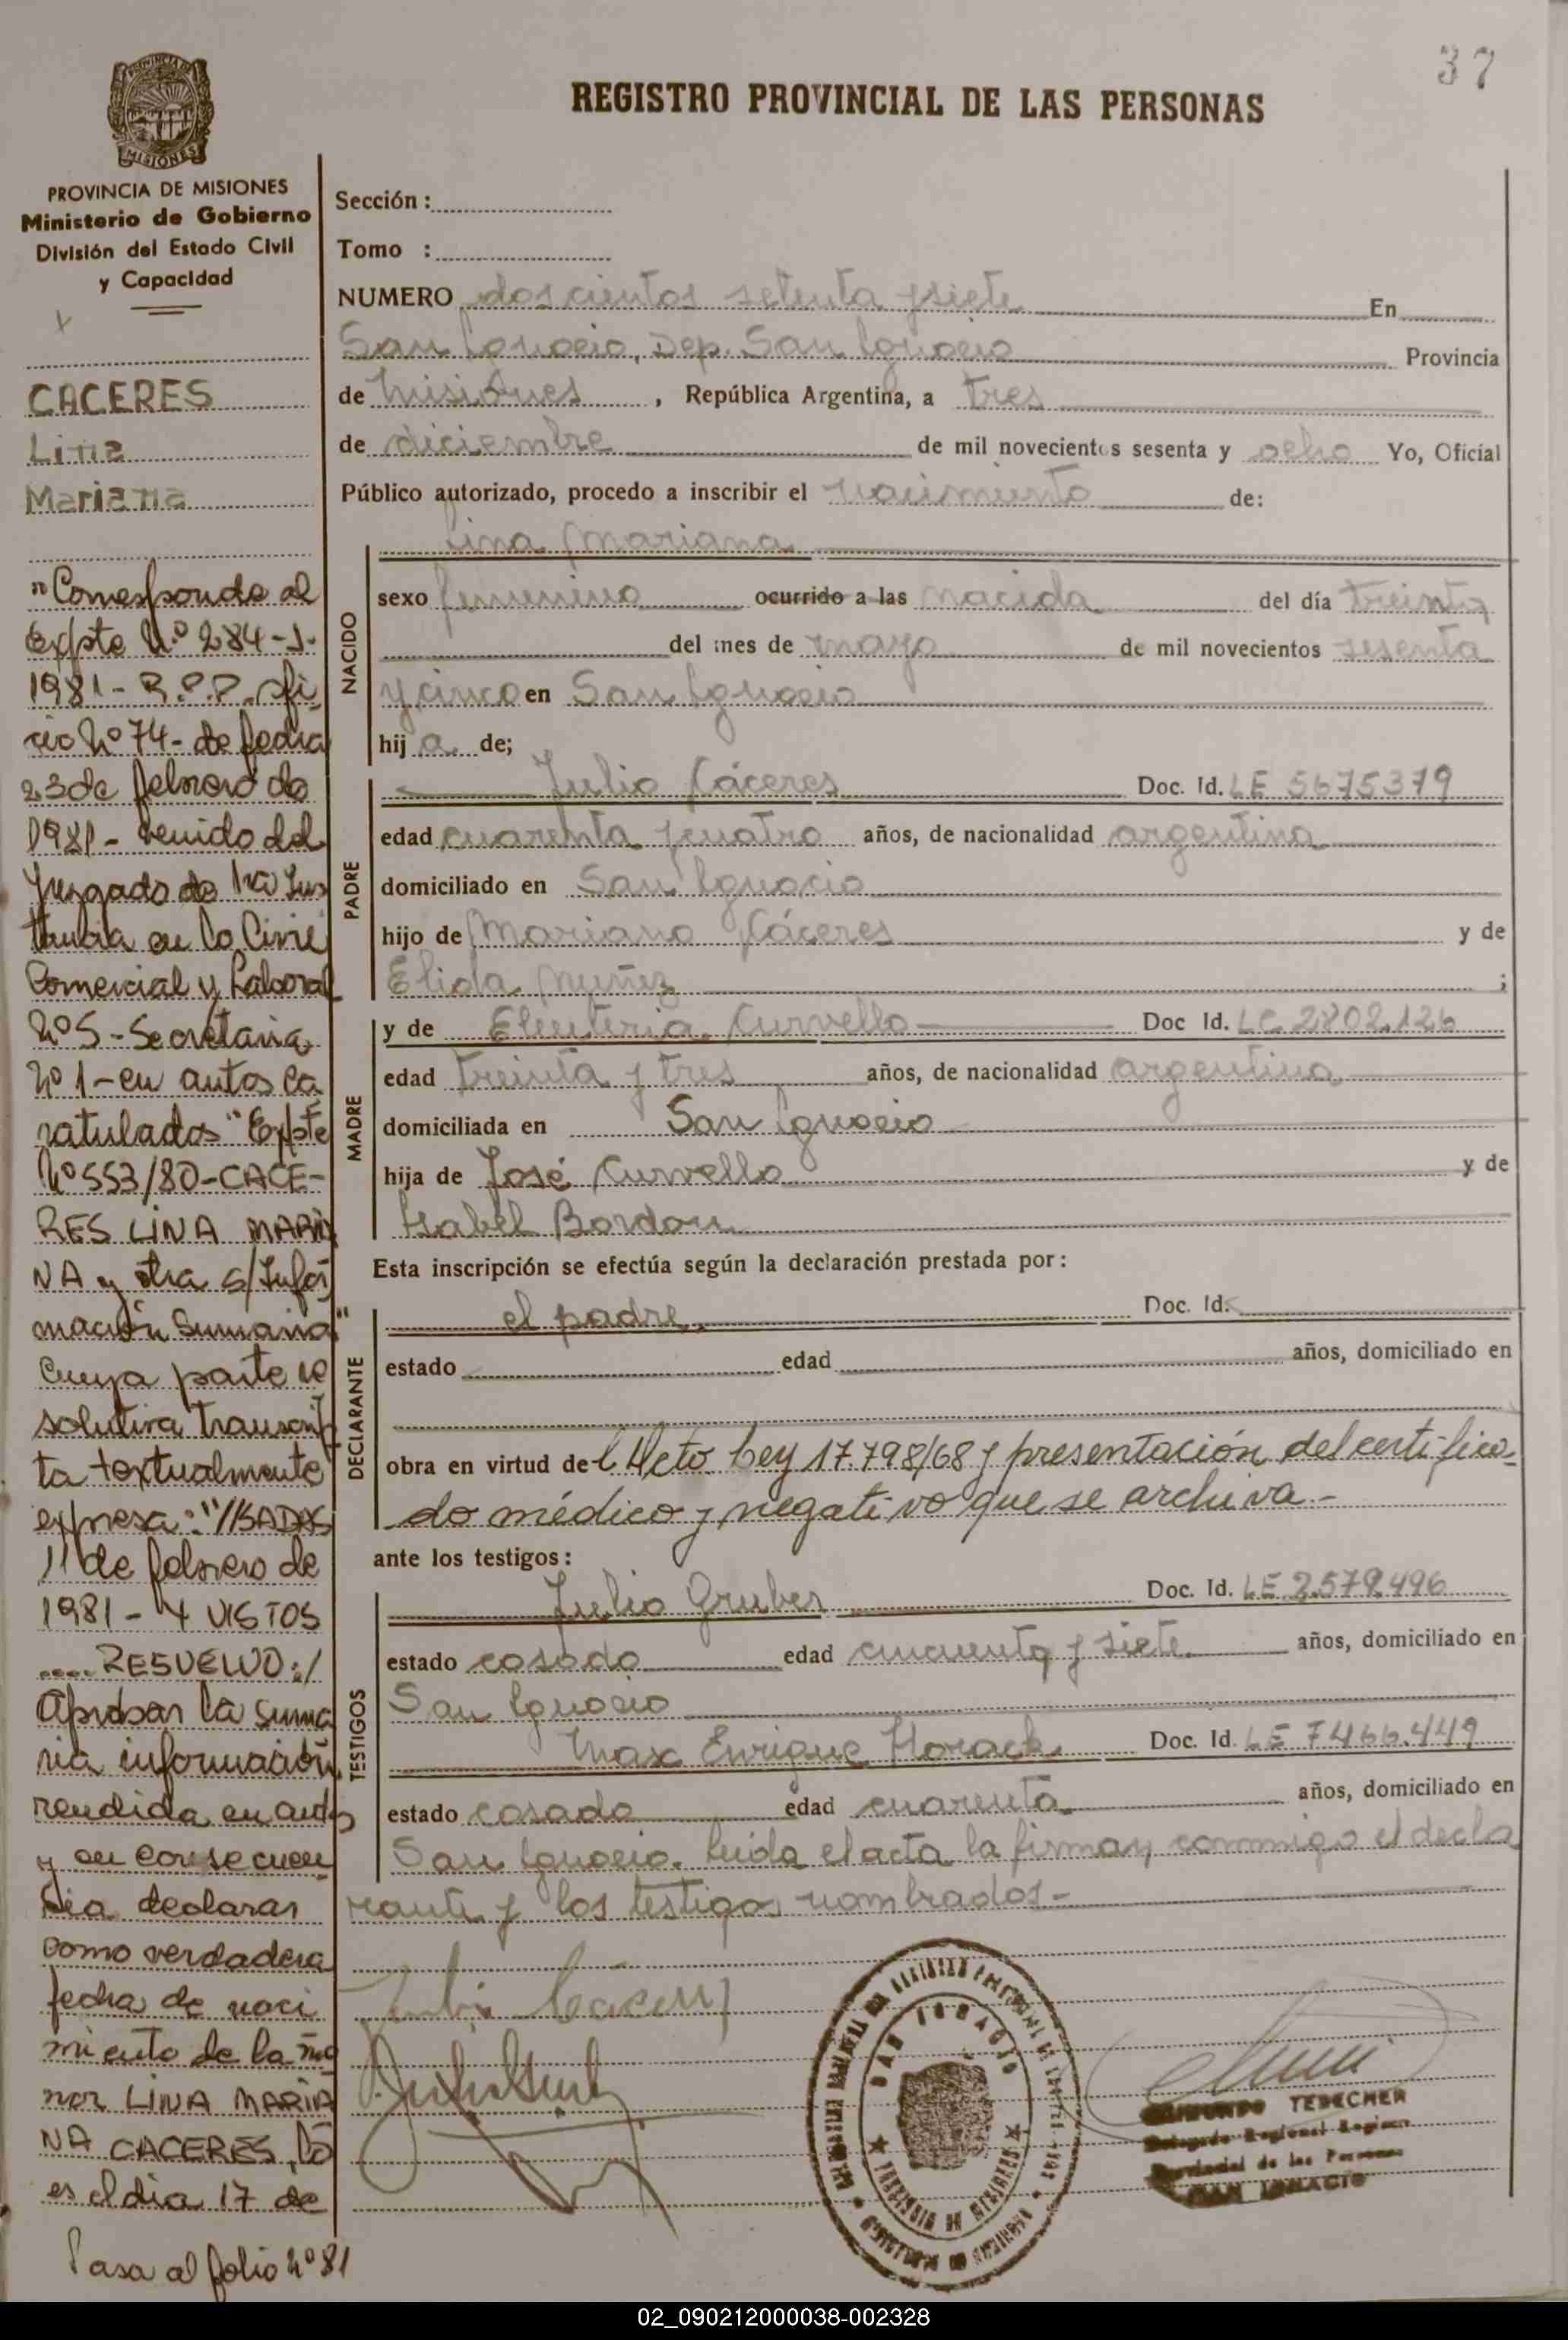 37
REGISTRO PROVINCIAL DE LAS PERSONAS
PROVINCIA DE MISIONES
Ministerio de Gobierno
División del Estado Civil
y Capacidad
CACERES
Lina
Mariana
"Corresponde al
Expte Nº 284-J-
1981 - R.P.P. ofi
cio Nº 74 - de fecha
23 de febrero de
1981 - venido del
Juzgado de 1ra Ins
tancia en lo Civil
Comercial y Laboral
Nº 5 - Secretaria
Nº 1 - en autos ca
ratulados "Expte
Nº 553/80 - CACE-
RES LINA MARIA
NA y otra s/Infor
mación Sumaria"
Cuya parte re
solutiva transcrip
ta textualmente
expresa: "//SADAS
11 de febrero de
1981 - Y VISTOS
.... RESUELVO:/
Aprobar la suma
ria información
rendida en autos
y en consecuen
cia declarar
como verdadera
fecha de naci
miento de la me
nor LINA MARIA
NA CACERES, lo
es el dia 17 de
Pasa al folio Nº 81
Sección :
Tomo :
NUMERO doscientos setenta y siete En
San Ignacio, Dep. San Ignacio Provincia
de Misiones , República Argentina, a tres
de diciembre de mil novecientos sesenta y ocho Yo, Oficial
Público autorizado, procedo a inscribir el nacimiento de:
NACIDO
Lina Mariana
sexo femenino ocurrido a las nacida del día treinta
del mes de mayo de mil novecientos sesenta
y cinco en San Ignacio
hij a de;
PADRE
Julio Cáceres Doc. Id. LE 5675379
edad cuarenta y cuatro años, de nacionalidad argentina
domiciliado en San Ignacio
hijo de Mariano Cáceres y de
Elida Nuñez ;
MADRE
y de Eleuteria Curvello Doc Id. LC 2802.126
edad treinta y tres años, de nacionalidad argentina
domiciliada en San Ignacio
hija de José Curvello y de
Isabel Bordon
Esta inscripción se efectúa según la declaración prestada por:
DECLARANTE
el padre. Doc. Id.
estado edad años, domiciliado en
obra en virtud del Dcto. Ley 17.798/68 y presentación del certifica-
do médico y negativo que se archiva.-
ante los testigos:
TESTIGOS
Julio Gruber Doc. Id. LE 2.579.496
estado casado edad cincuenta y siete años, domiciliado en
San Ignacio
Max Enrique Horack Doc. Id. LE 7466.449
estado casado edad cuarenta años, domiciliado en
San Ignacio. Leida el acta la firman conmigo el decla
rante y los testigos nombrados-
Julio Cáceres
SAN IGNACIO
PROVINCIA DE MISIONES
TEDECHER
Delegado Regional Registro
Provincial de las Personas
SAN IGNACIO
02_090212000038-002328